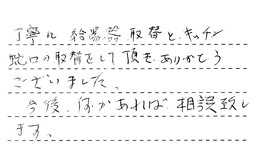 丁寧に給湯器取替と、キッチン
蛇口の取替をして頂き、ありがとう
ございました。
今後、何かあれば相談致し
ます。